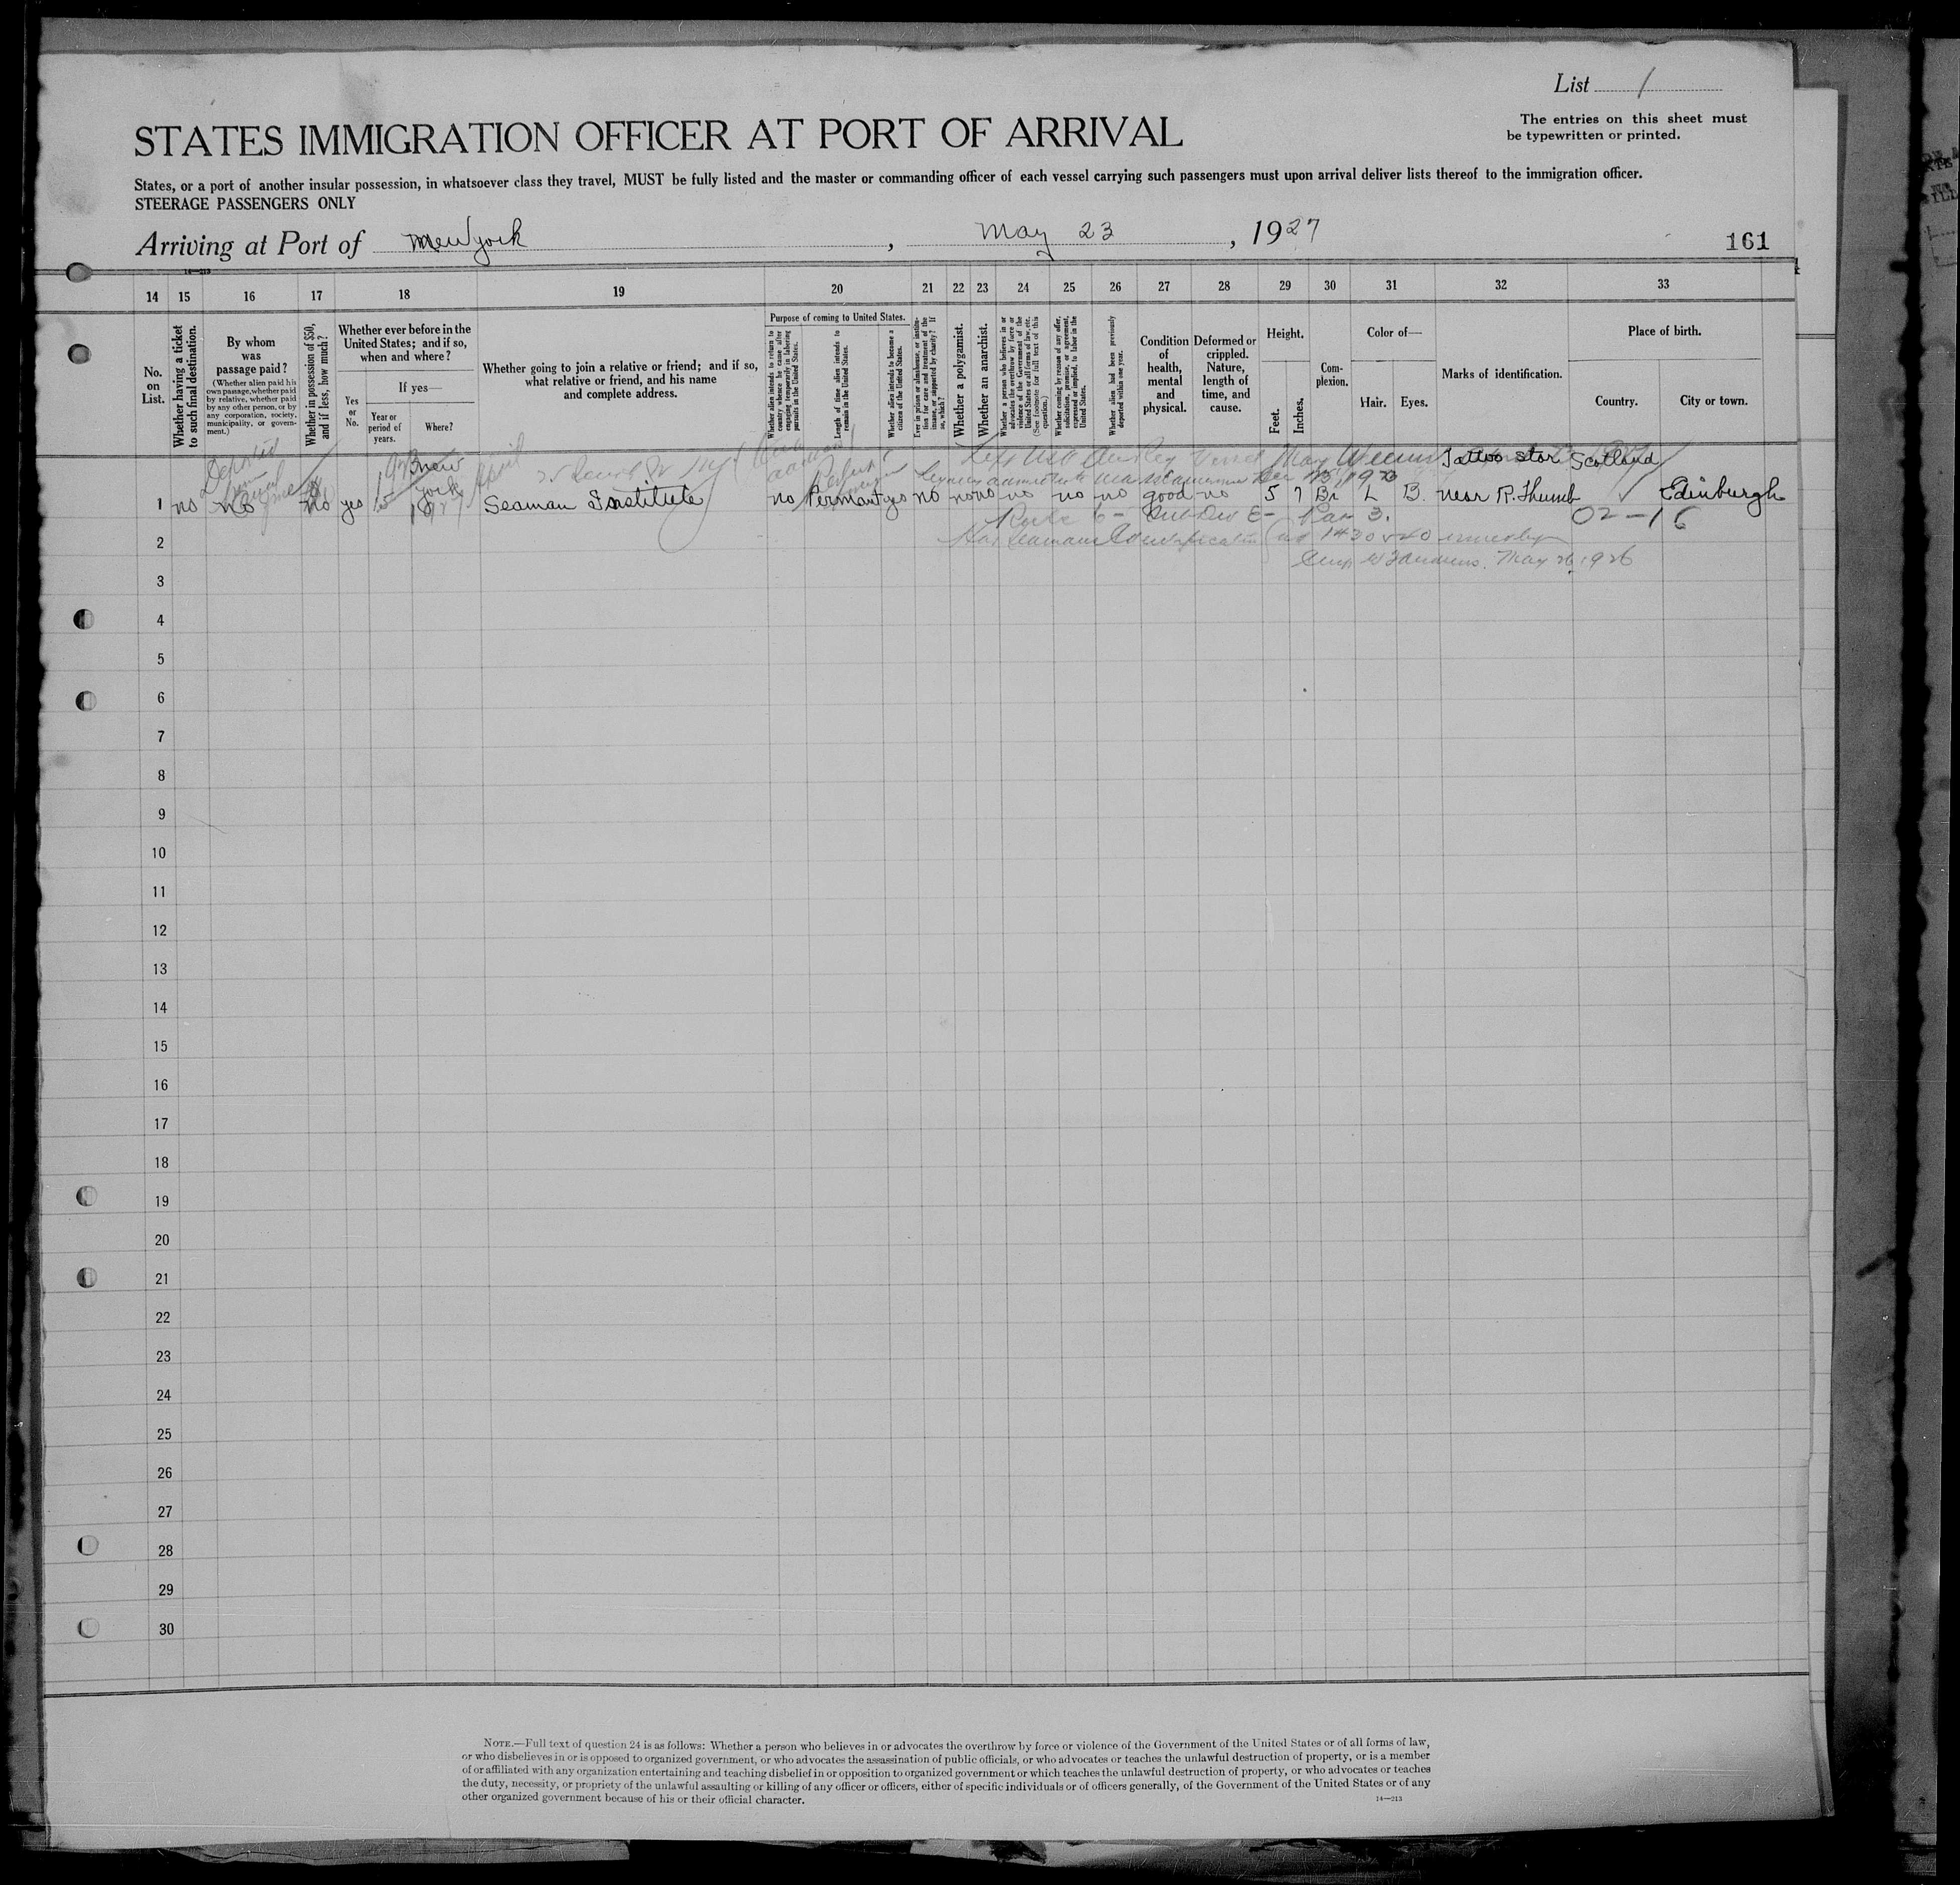 List 1
The entries on this sheet must
be typewritten or printed.
STATES IMMIGRATION OFFICER AT PORT OF ARRIVAL
States, or a port of another insular possession, in whatsoever class they travel, MUST be fully listed and the master or commanding officer of each vessel carrying such passengers must upon arrival deliver lists thereof to the immigration officer.
STEERAGE PASSENGERS ONLY
Arriving at Port of New York, May 23, 1927
161
14—213
14 15 16 17 18 19 20 21 22 23 24 25 26 27 28 29 30 31 32 33
No. on List.
Whether having a ticket to such final destination.
By whom was passage paid?
(Whether alien paid his own passage, whether paid by relative, whether paid by any other person, or by any corporation, society, municipality, or government.)
Whether in possession of $50, and if less, how much?
Whether ever before in the United States; and if so, when and where?
Yes or No.
If yes—
Year or period of years.
Where?
Whether going to join a relative or friend; and if so, what relative or friend, and his name and complete address.
Purpose of coming to United States.
Whether alien intends to return to country whence he came after engaging temporarily in laboring pursuits in the United States.
Length of time alien intends to remain in the United States.
Whether alien intends to become a citizen of the United States.
Ever in prison or almshouse, or institution for care and treatment of the insane, or supported by charity? If so, which?
Whether a polygamist.
Whether an anarchist.
Whether a person who believes in or advocates the overthrow by force or violence of the Government of the United States or all forms of law, etc. (See footnote for full text of this question.)
Whether coming by reason of any offer, solicitation, promise, or agreement, expressed or implied, to labor in the United States.
Whether alien had been previously deported within one year.
Condition of health, mental and physical.
Deformed or crippled. Nature, length of time, and cause.
Height.
Feet. Inches.
Complexion.
Color of—
Hair. Eyes.
Marks of identification.
Place of birth.
Country. City or town.
Deported
New York
April
25
Tattoo star Scotland
1 no no no yes Seaman Institute no Permant yes no no no no no no good no 5 7 Br L B. near R. Thumb Edinburgh
Rule 6- Sub Div E- Par 3. 02-16
2
May 26, 1926
3
4
5
6
7
8
9
10
11
12
13
14
15
16
17
18
19
20
21
22
23
24
25
26
27
28
29
30
NOTE.—Full text of question 24 is as follows: Whether a person who believes in or advocates the overthrow by force or violence of the Government of the United States or of all forms of law,
or who disbelieves in or is opposed to organized government, or who advocates the assassination of public officials, or who advocates or teaches the unlawful destruction of property, or is a member
of or affiliated with any organization entertaining and teaching disbelief in or opposition to organized government or which teaches the unlawful destruction of property, or who advocates or teaches
the duty, necessity, or propriety of the unlawful assaulting or killing of any officer or officers, either of specific individuals or of officers generally, of the Government of the United States or of any
other organized government because of his or their official character.
14—213